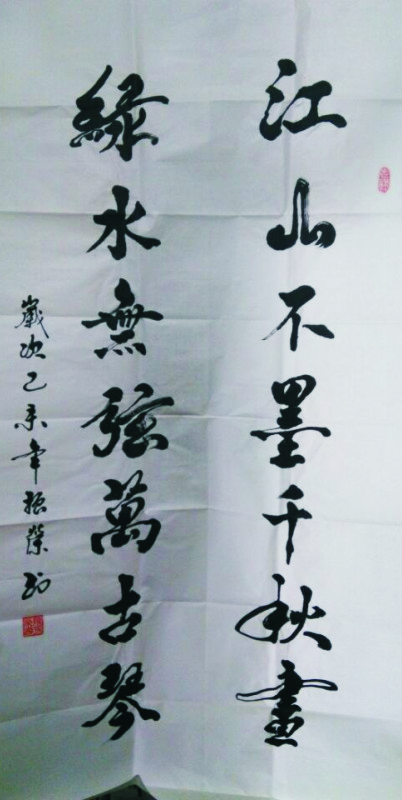 江山不墨千秋畫
綠水無弦萬古琴
歲次乙未年振榮書